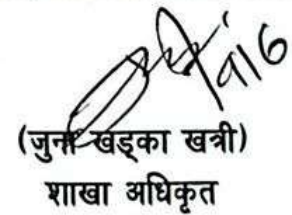 ९१६
(जुना खड्का खत्री)
शाखा अधिकृत